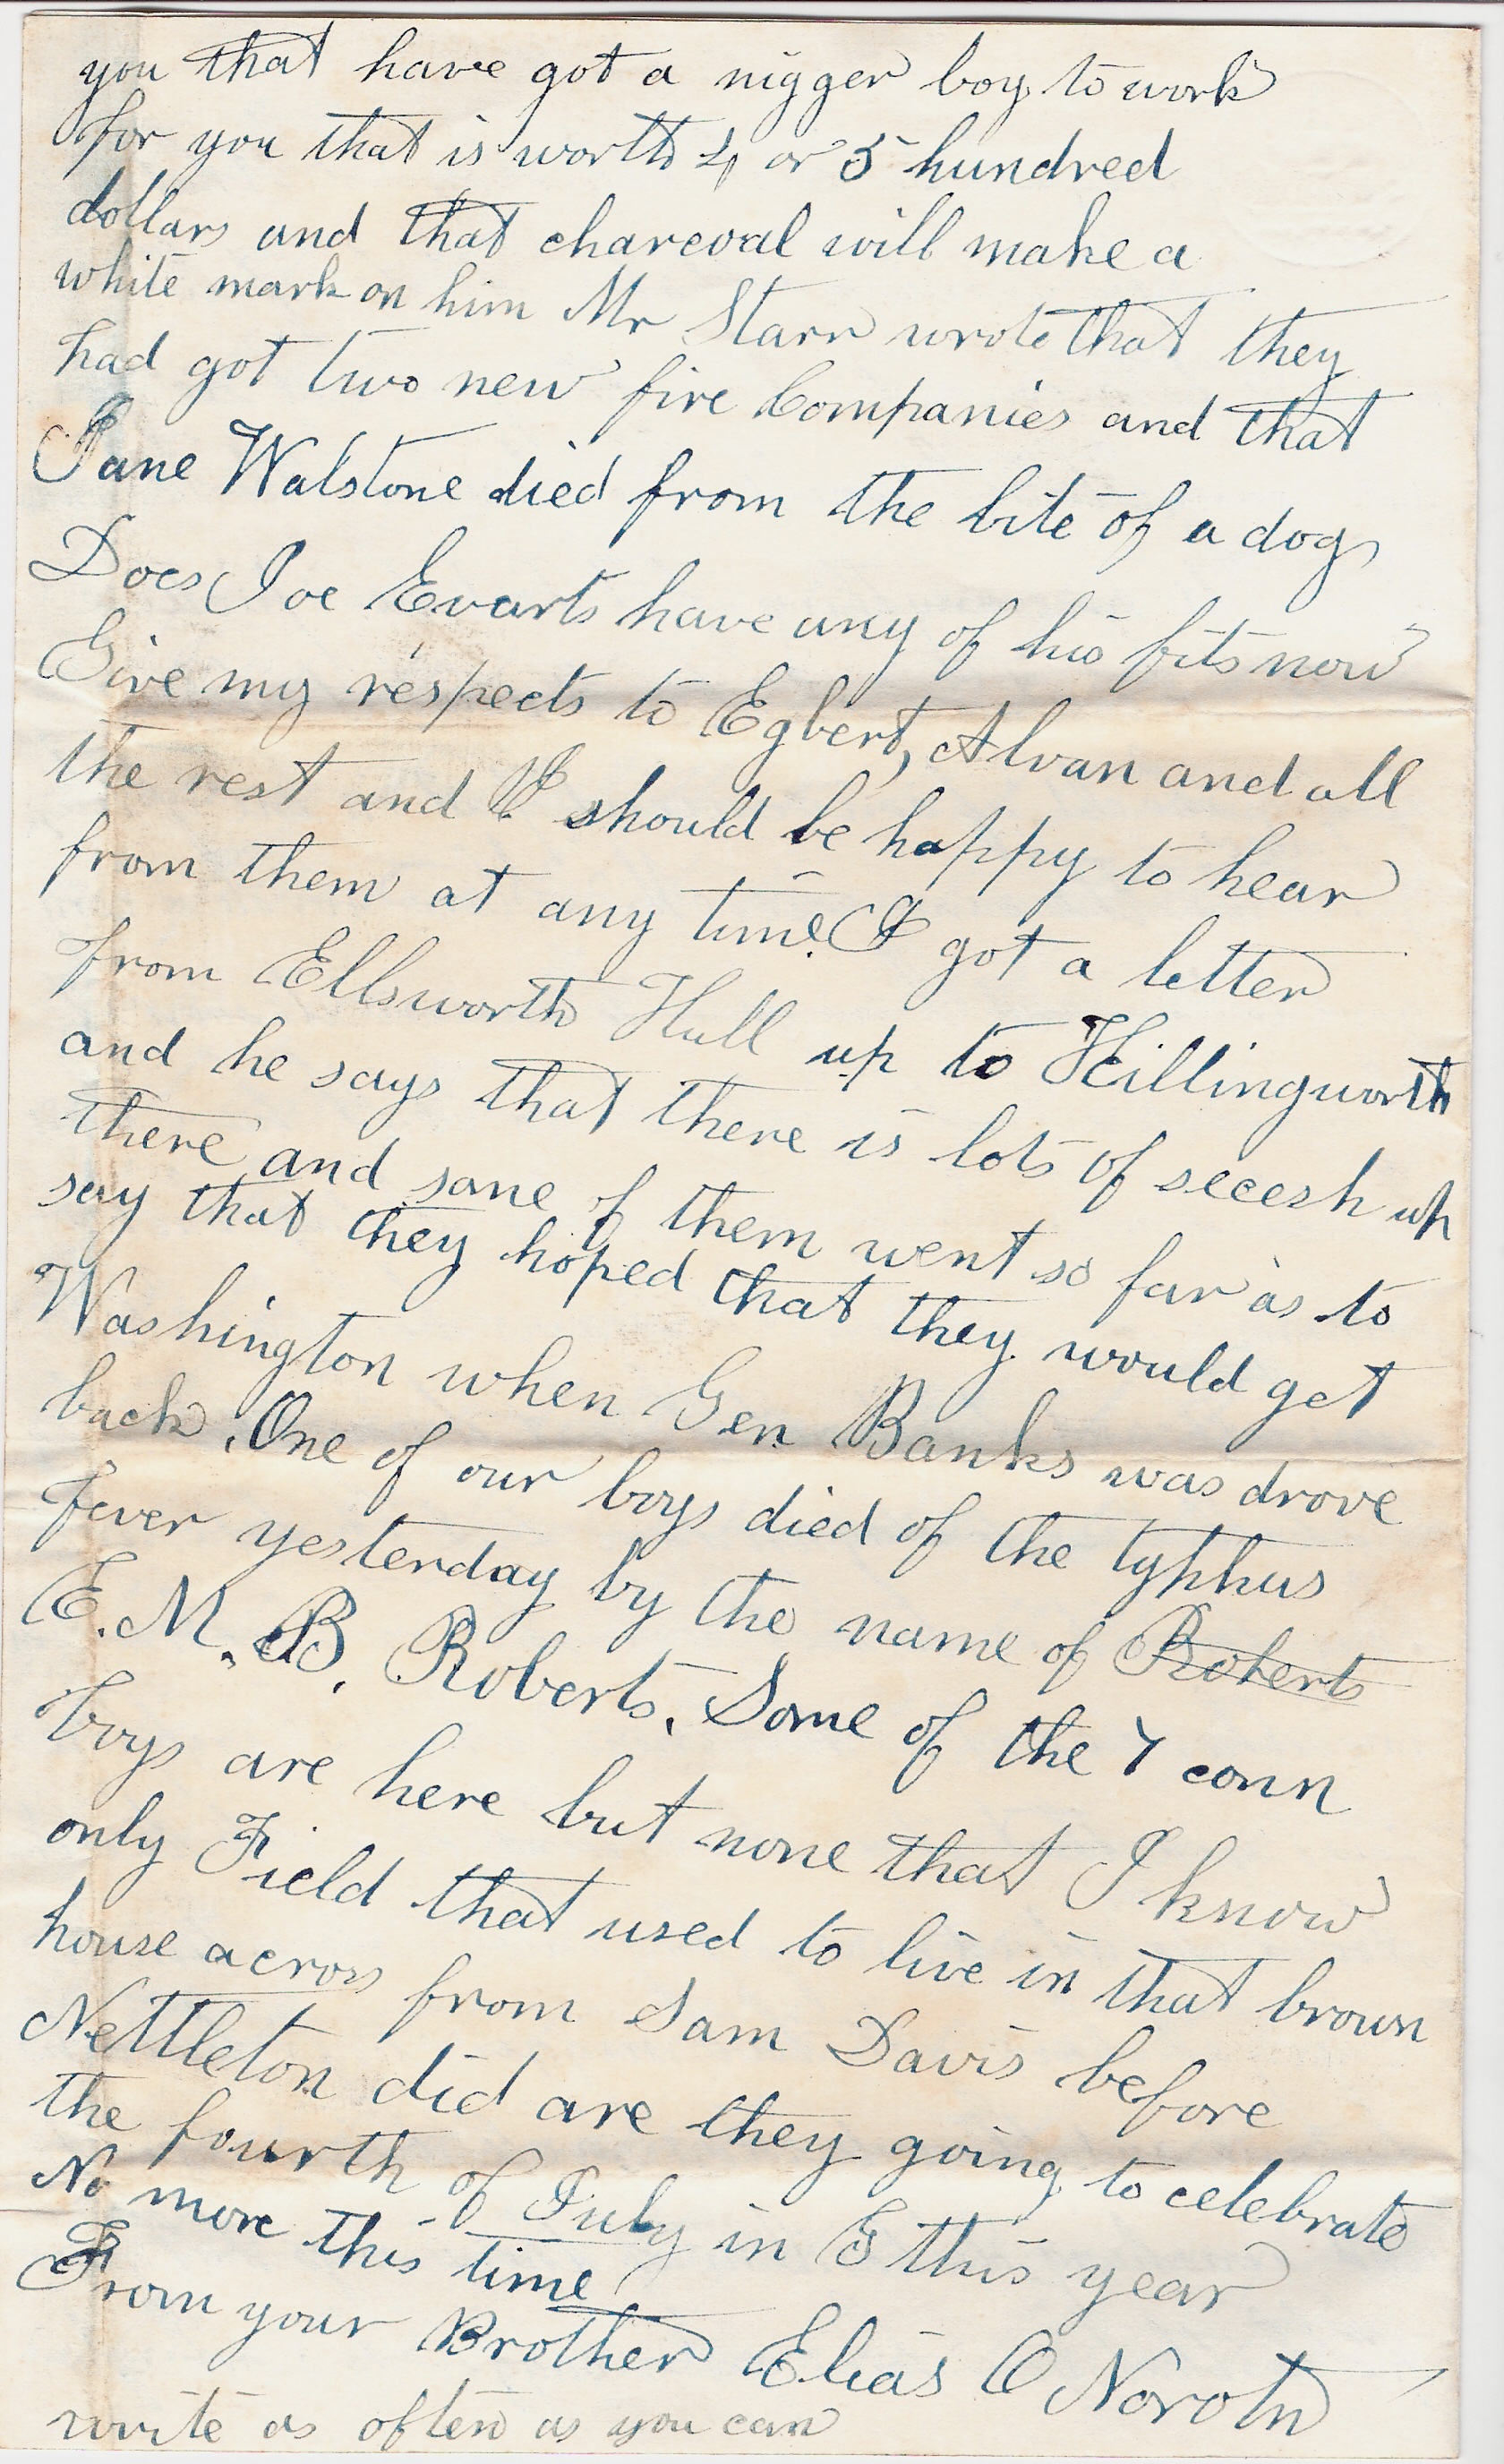 you that have got a nigger boy to work
for you that is worth 4 or 5 hundred
dollars and that charcoal will make a
white mark on him Mr Starr wrote that they
had got two new fire Companies and that
Jane Walstone died from the bite of a dog
Does Joe Evarts have any of his fits now
Give my respects to Egbert, Alvan and all
the rest and I should be happy to hear
from them at any time. I got a letter
from Ellsworth Hull up to Killingworth
and he says that there is lots of secesh up
there and some of them went so far as to
say that they hoped that they would get
Washington when Gen Banks was drove
back. One of our boys died of the typhus
fever yesterday by the name of Roberts
E. M. B. Roberts. Some of the 7 conn
boys are here but none that I know
only Field that used to live in that brown
house across from Sam Davis before
Nettleton did are they going to celebrate
the fourth of July in G this year
No more this time
From your Brother Elias C
write as often as you can